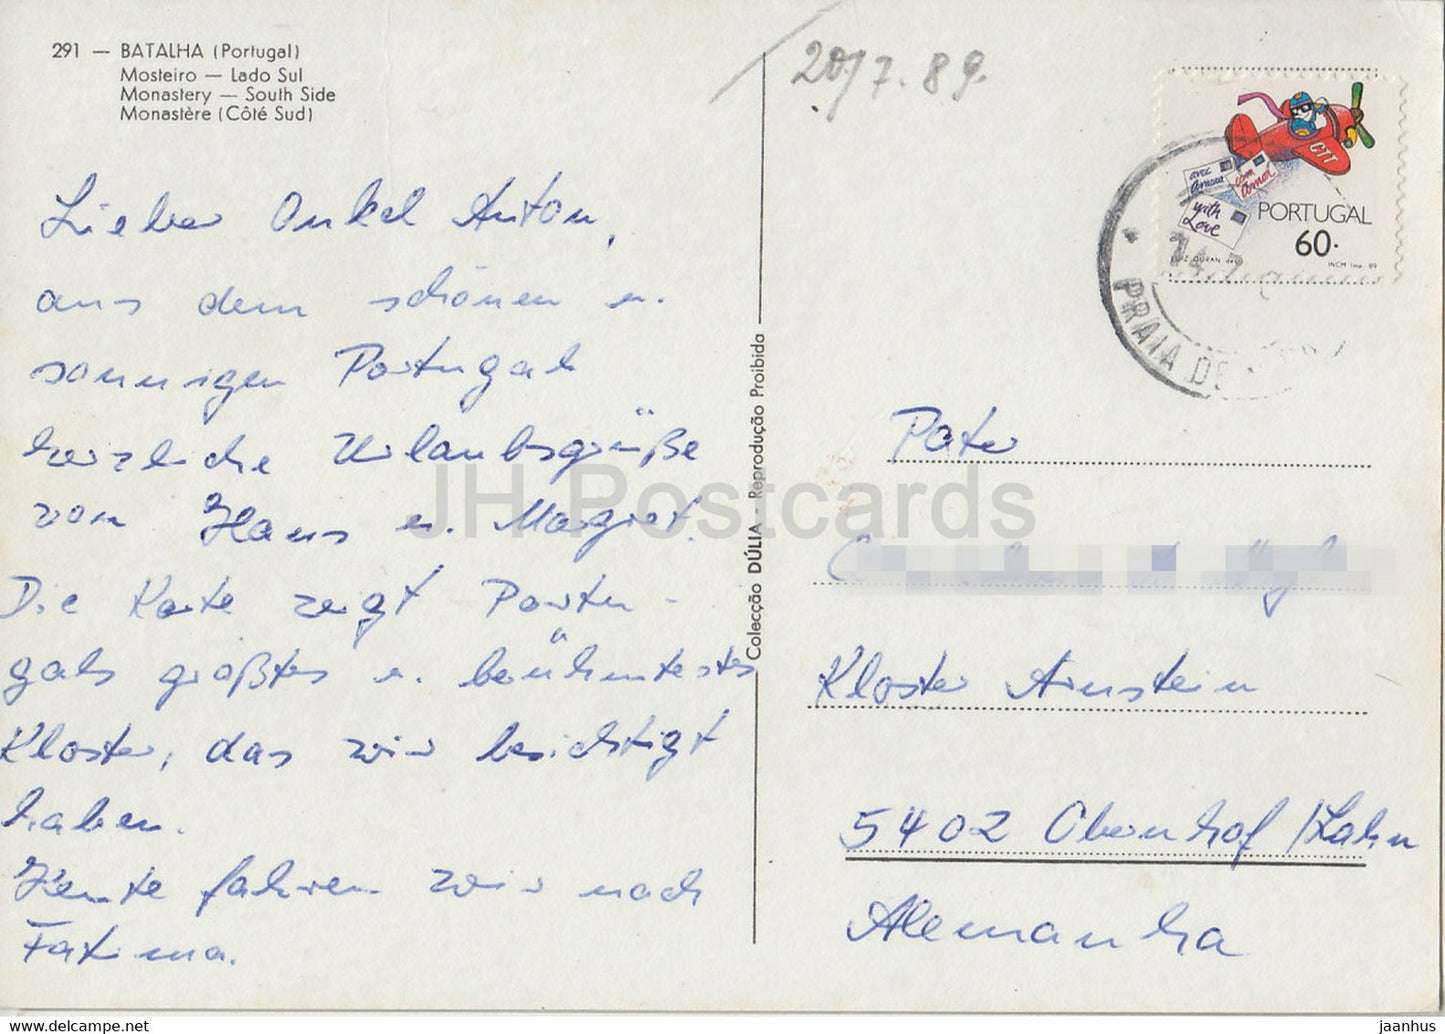 291 — BATALHA (Portugal)
Mosteiro — Lado Sul
Monastery — South Side
Monastère (Côté Sud)
Lieber Onkel Anton,
aus dem schönen u.
sonnigen Portugal
herzliche Urlaubsgrüße
von Hans u. Margret.
Die Karte zeigt Portu-
gals größtes u. berühmtestes
Kloster, das wir besichtigt
haben.
Heute fahren wir nach
Fatima.
Colecção DÚLIA - Reprodução Proibida
20/7.89.
CTT
avec amour
com amor
with Love
PORTUGAL
60.
INCM Imp. 89
PRAIA DE
Pater
Kloster Arnstein
5402 Obernhof/Lahn
Alemanha
JH Postcards
www.delcampe.net
jaanhus